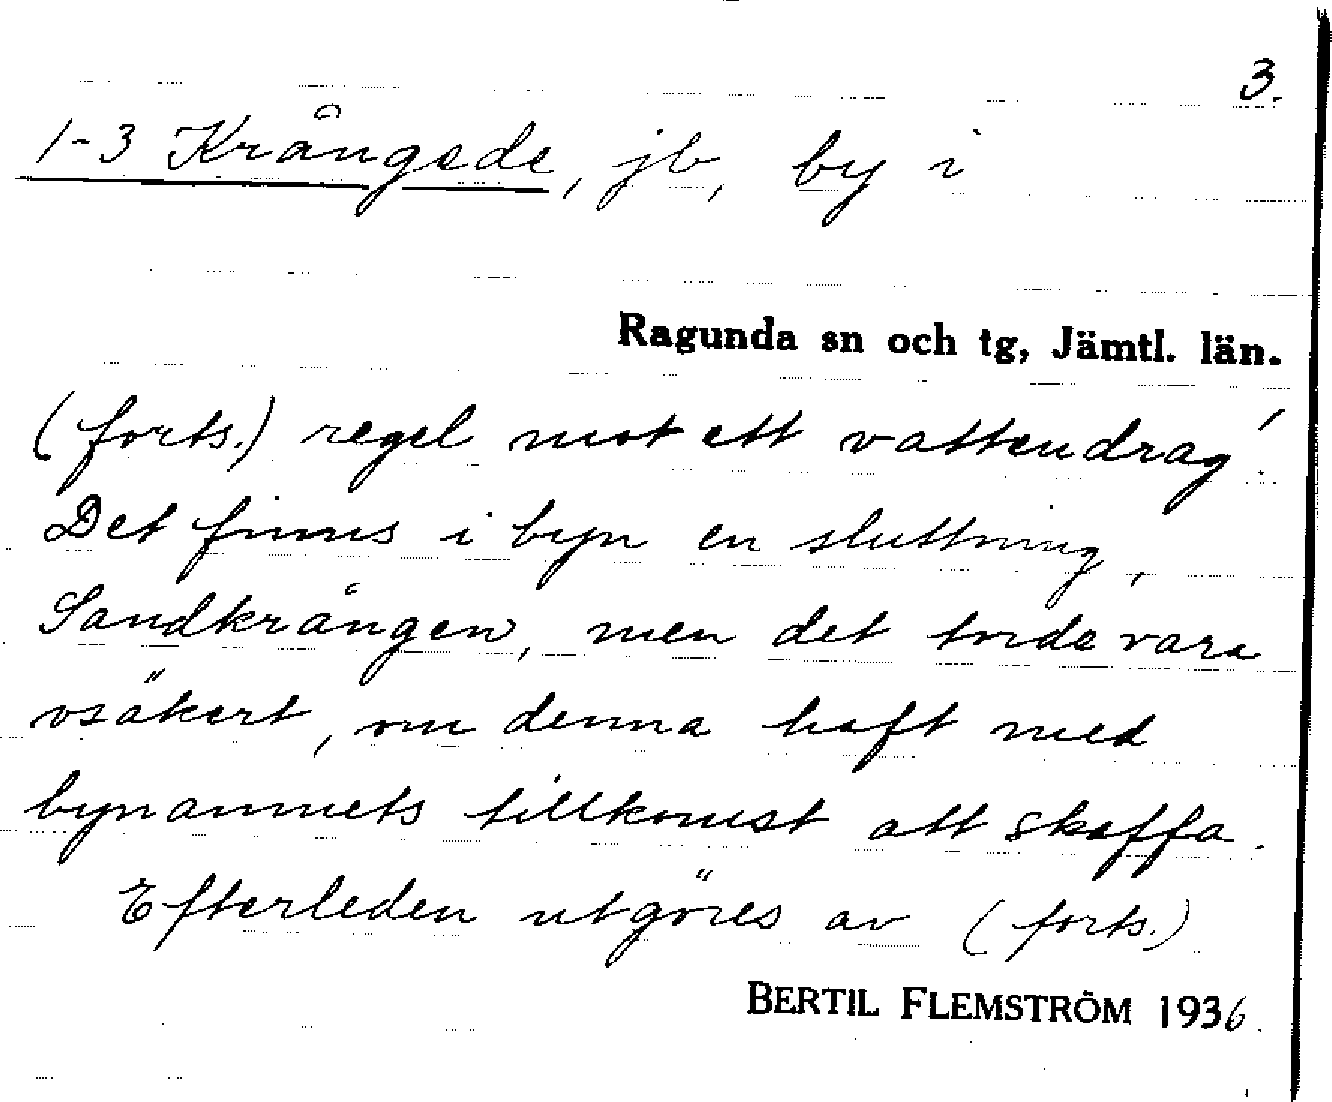 3.
1-3 Krångede, jb, by i
Ragunda sn och tg, Jämtl. län.
(forts.) regel mot ett vattendrag!
Det finns i byn en sluttning,
Sandkrången, men det torde vara
osäkert, om denna haft med
bynamnets tillkomst att skaffa.
Efterleden utgöres av (forts.)
BERTIL FLEMSTRÖM 1936.